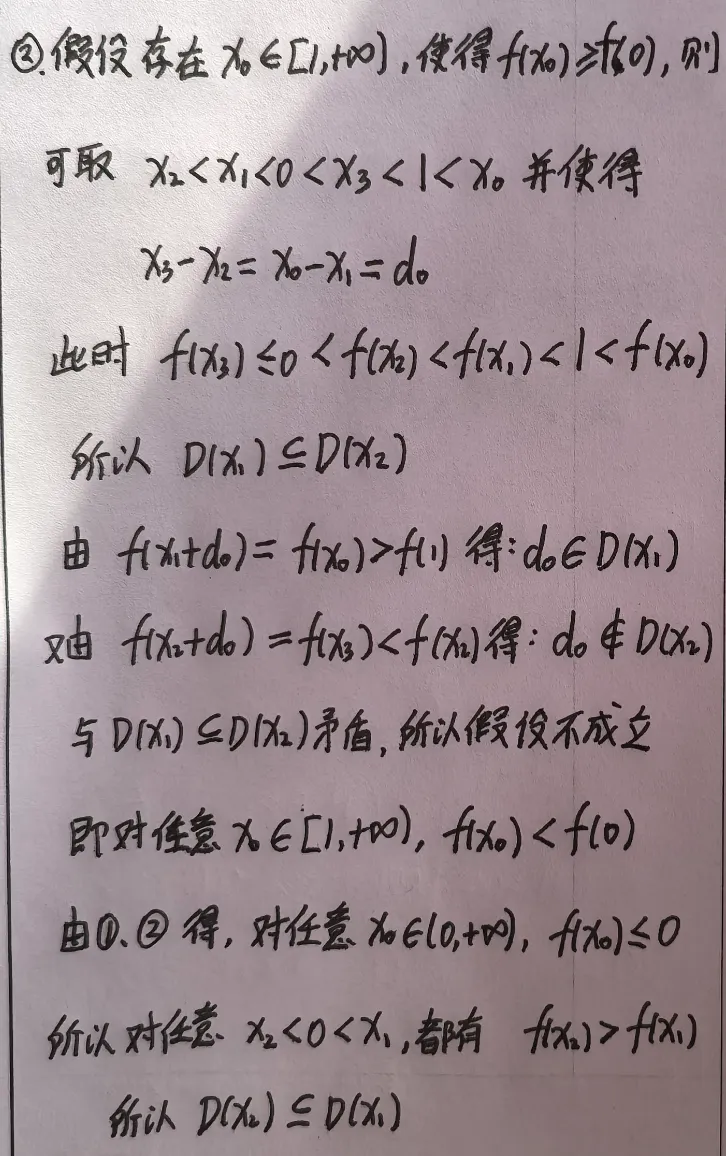 ②.假设存在 x₀∈[1,+∞),使得f(x₀)≥f(0),则
可取 x₂<x₁<0<x₃<1<x₀ 并使得
x₃-x₂=x₀-x₁=d₀
此时 f(x₃)≤0<f(x₂)<f(x₁)<1<f(x₀)
所以 D(x₁)⊆D(x₂)
由 f(x₁+d₀)=f(x₀)>f(1) 得:d₀∈D(x₁)
又由 f(x₂+d₀)=f(x₃)<f(x₂)得:d₀∉D(x₂)
与D(x₁)⊆D(x₂)矛盾,所以假设不成立
即对任意 x₀∈[1,+∞),f(x₀)<f(0)
由①、②得,对任意 x₀∈(0,+∞),f(x₀)≤0
所以对任意 x₂<0<x₁,都有 f(x₂)>f(x₁)
所以 D(x₂)⊆D(x₁)